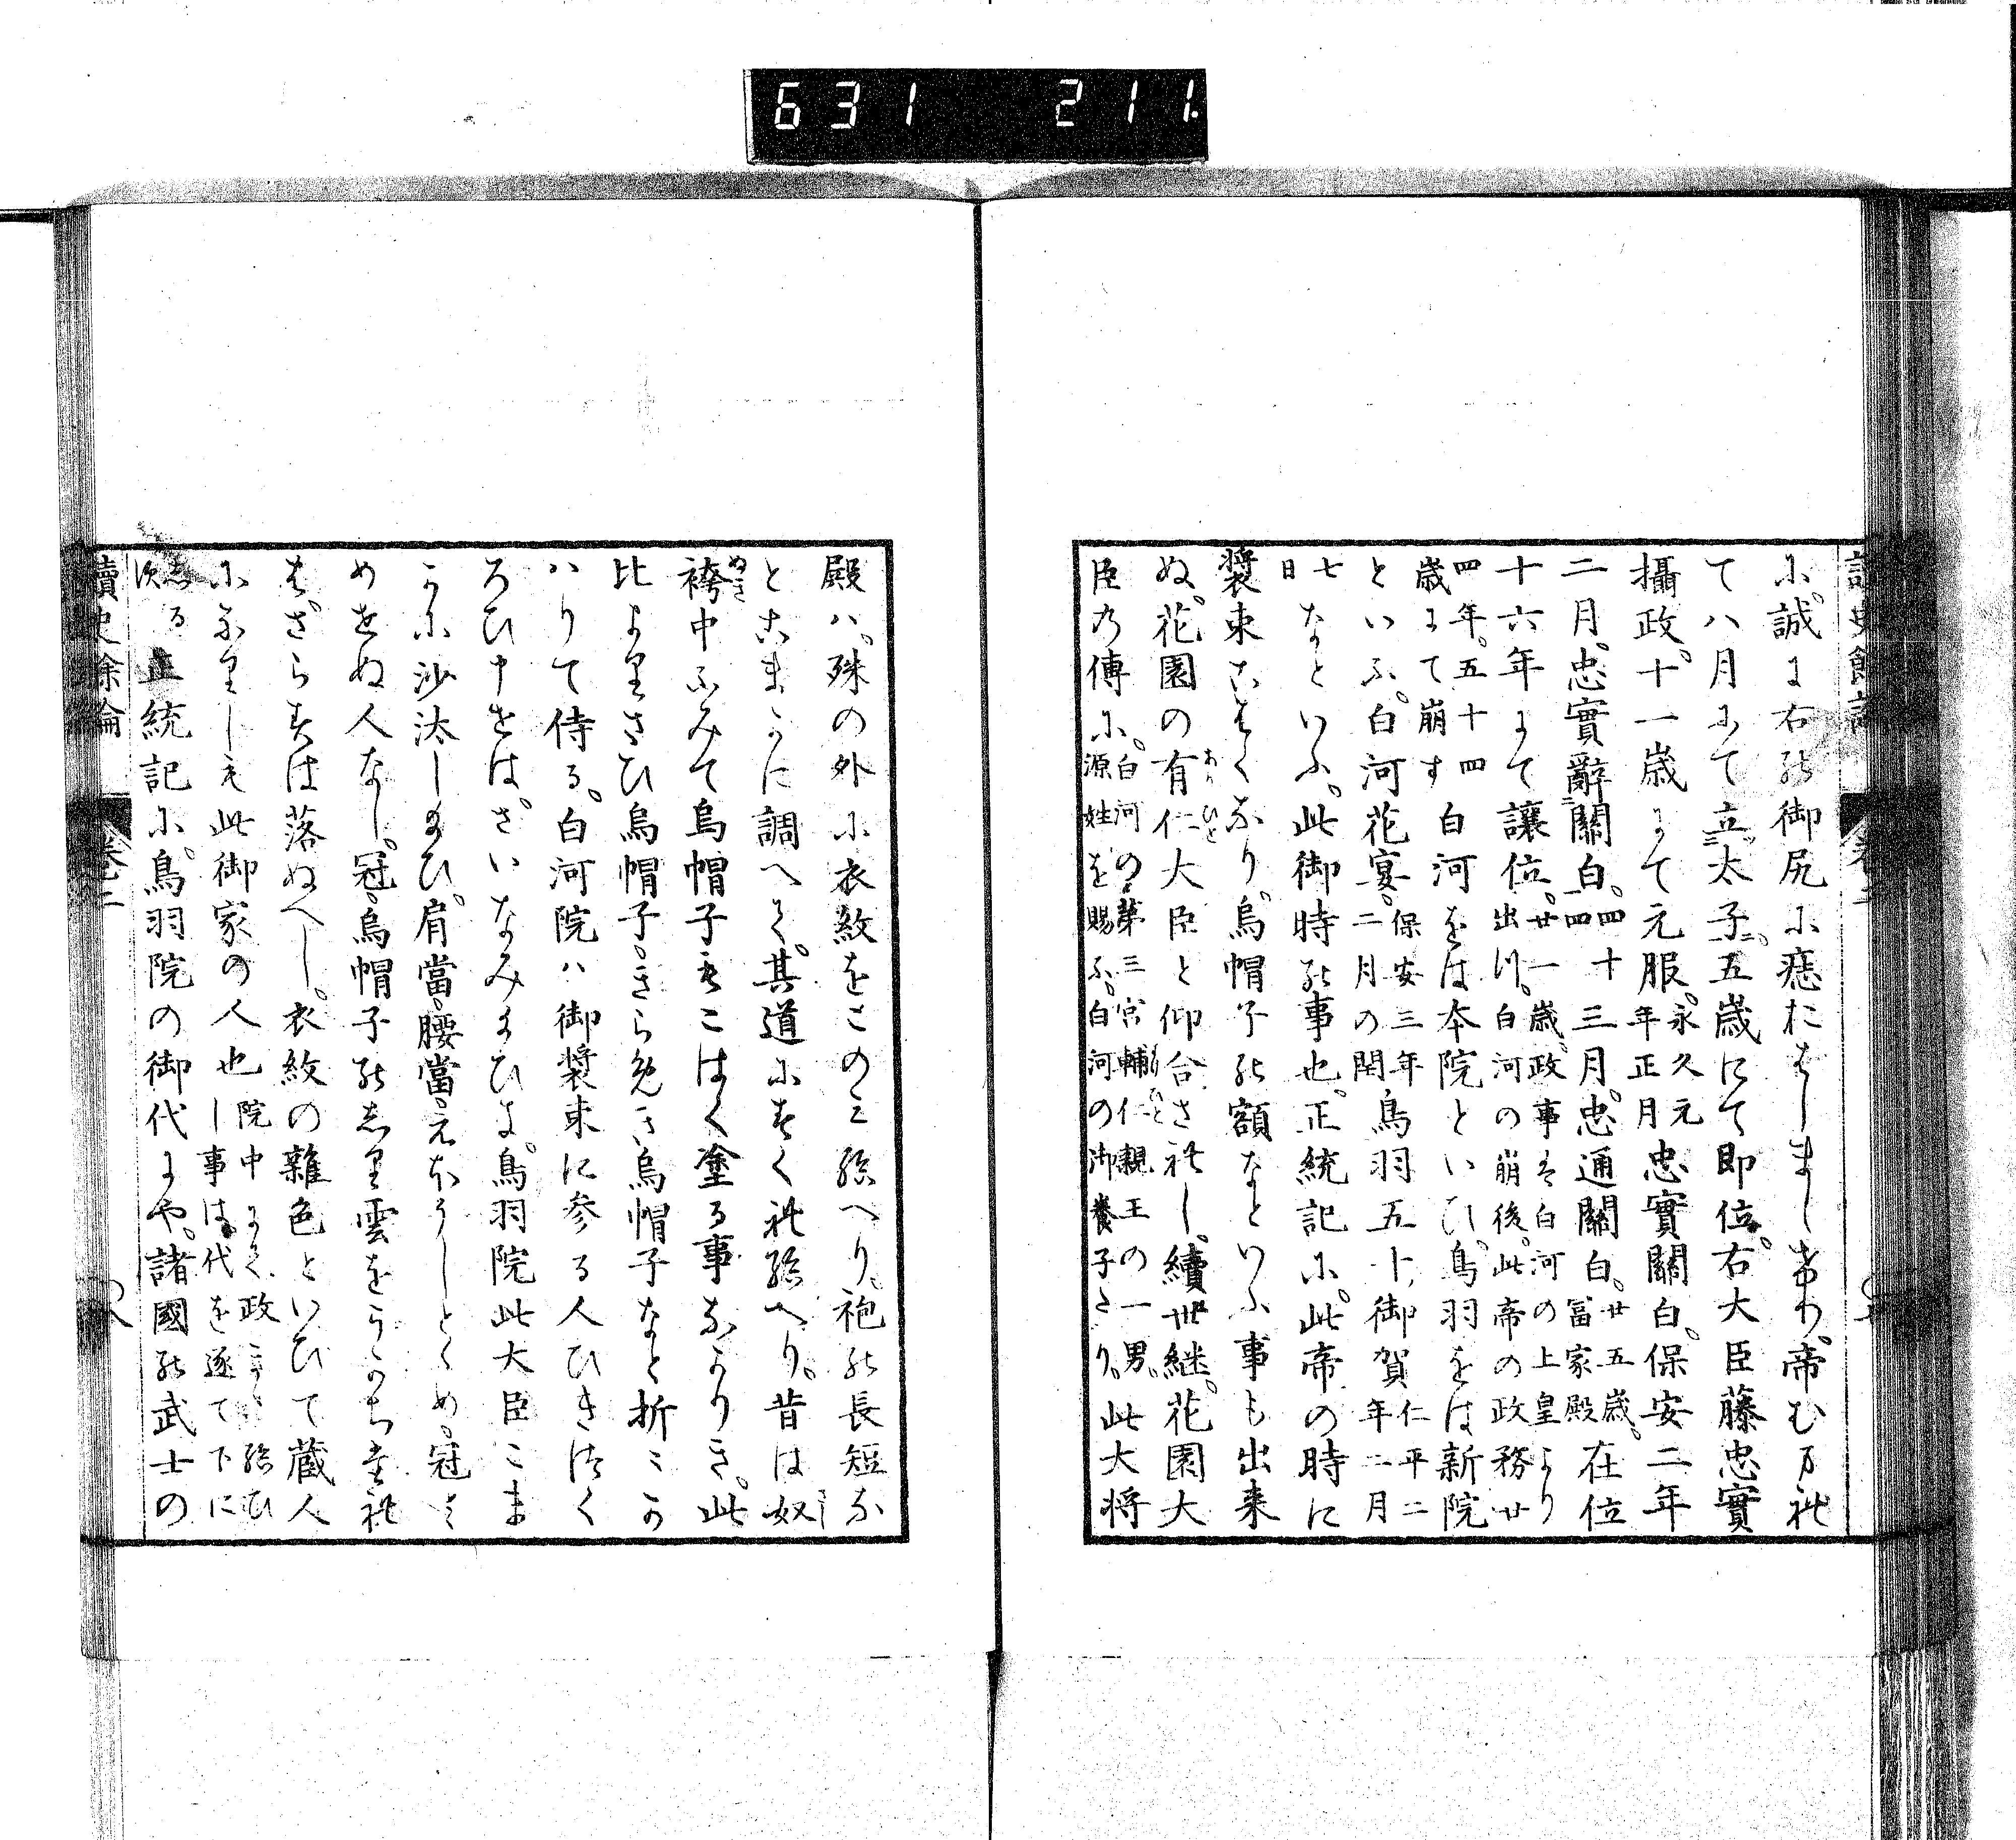 631 211.
に。誠に右の御尻に痣おはしましけり。帝むまれ
て八月にて立太子。五歳にて即位。右大臣藤忠實
攝政。十一歳にて元服。永久元年正月忠實關白。保安二年
二月。忠實辭關白。四十四三月。忠通關白。廿五歳。冨家殿在位
十六年にて讓位。廿一歳。政事は白河の上皇より出川。白河の崩後。此帝の政務廿
四年。五十四歳にて崩す白河をは本院といひ。鳥羽をは新院
といふ。白河花宴。保安三年二月の閏鳥羽五十御賀仁平二年二月
七日なといふ。此御時の事也。正統記に。此帝の時に
装束こはくなり。烏帽子の額なといふ事も出来
ぬ。花園の有仁大臣と仰合されし。續世継。花園大
臣乃傳に。白河の弟三宮輔仁親王の一男。源姓を賜ふ。白河の御養子たり。此大将
殿ハ。殊の外に衣紋をこのみ給へり。袍の長短な
とこまかに調へて。其道にすくれ給へり。昔は奴
袴中ふみて烏帽子もこはく塗る事なかりき。此
比よりさひ烏帽子。きらめき烏帽子なと折々か
ハりて侍る。白河院ハ御装束に参る人ひきつく
ろひ申せは。さいなみまひき。鳥羽院此大臣こま
かに沙汰しまひ。肩當。腰當。えほうしとゝめ。冠と
めせぬ人なし。冠。烏帽子のしり雲をうかちたれ
はさらすは落ぬへし。衣紋の雜色といひて蔵人
になりしも此御家の人也院中にて政こち給ひし事は代を逐て下に
しるす正統記に。鳥羽院の御代にや。諸國の武士の
讀史餘論 卷二